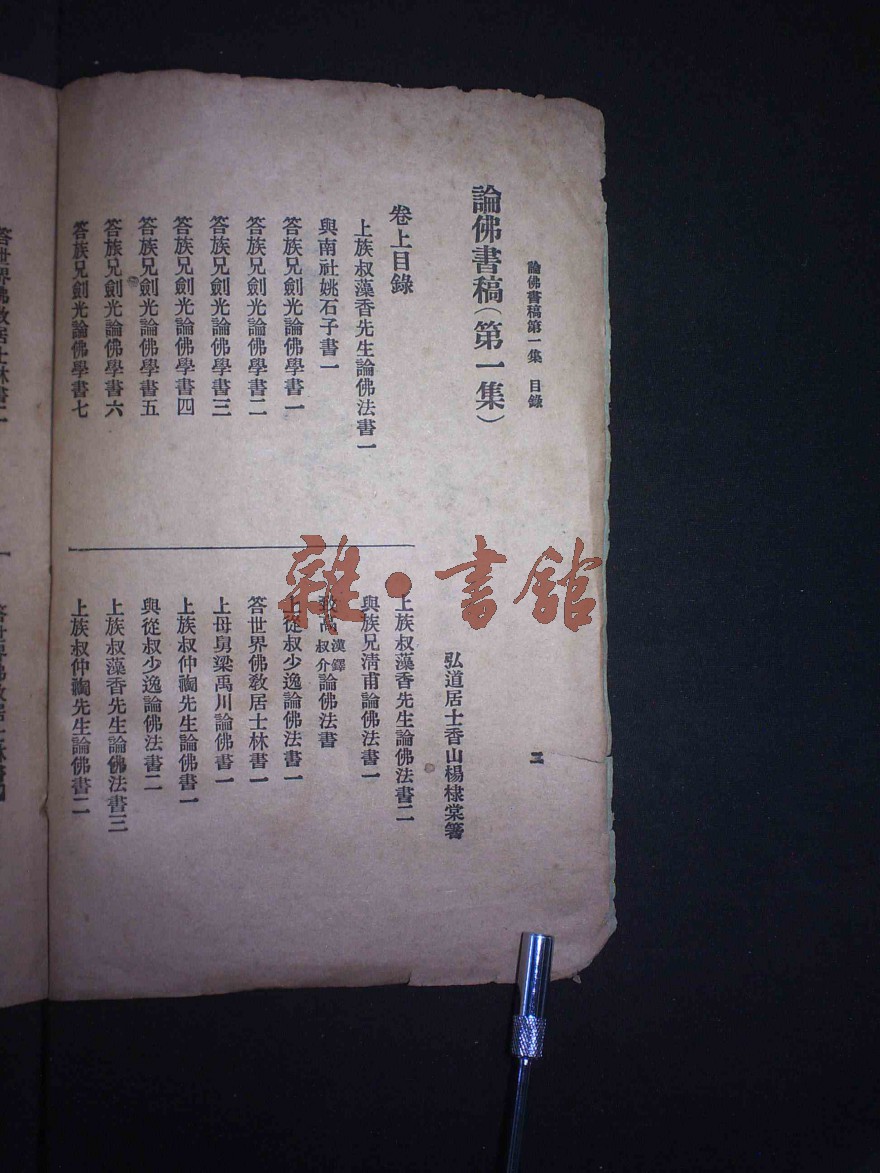 論佛書稿第一集　目錄
二
論佛書稿（第一集）
弘道居士香山楊棣棠箸
卷上目錄
上族叔藻香先生論佛法書一
與南社姚石子書一
答族兄劍光論佛學書一
答族兄劍光論佛學書二
答族兄劍光論佛學書三
答族兄劍光論佛學書四
答族兄劍光論佛學書五
答族兄劍光論佛學書六
答族兄劍光論佛學書七
上族叔藻香先生論佛法書二
與族兄清甫論佛法書一
高漢鐸叔介論佛法書
上從叔少逸論佛法書一
答世界佛教居士林書一
上母舅梁禹川論佛書一
上族叔仲裪先生論佛書一
與從叔少逸論佛法書二
上族叔藻香先生論佛法書三
上族叔仲裪先生論佛書二
答世界佛教居士林書二
雜·書館